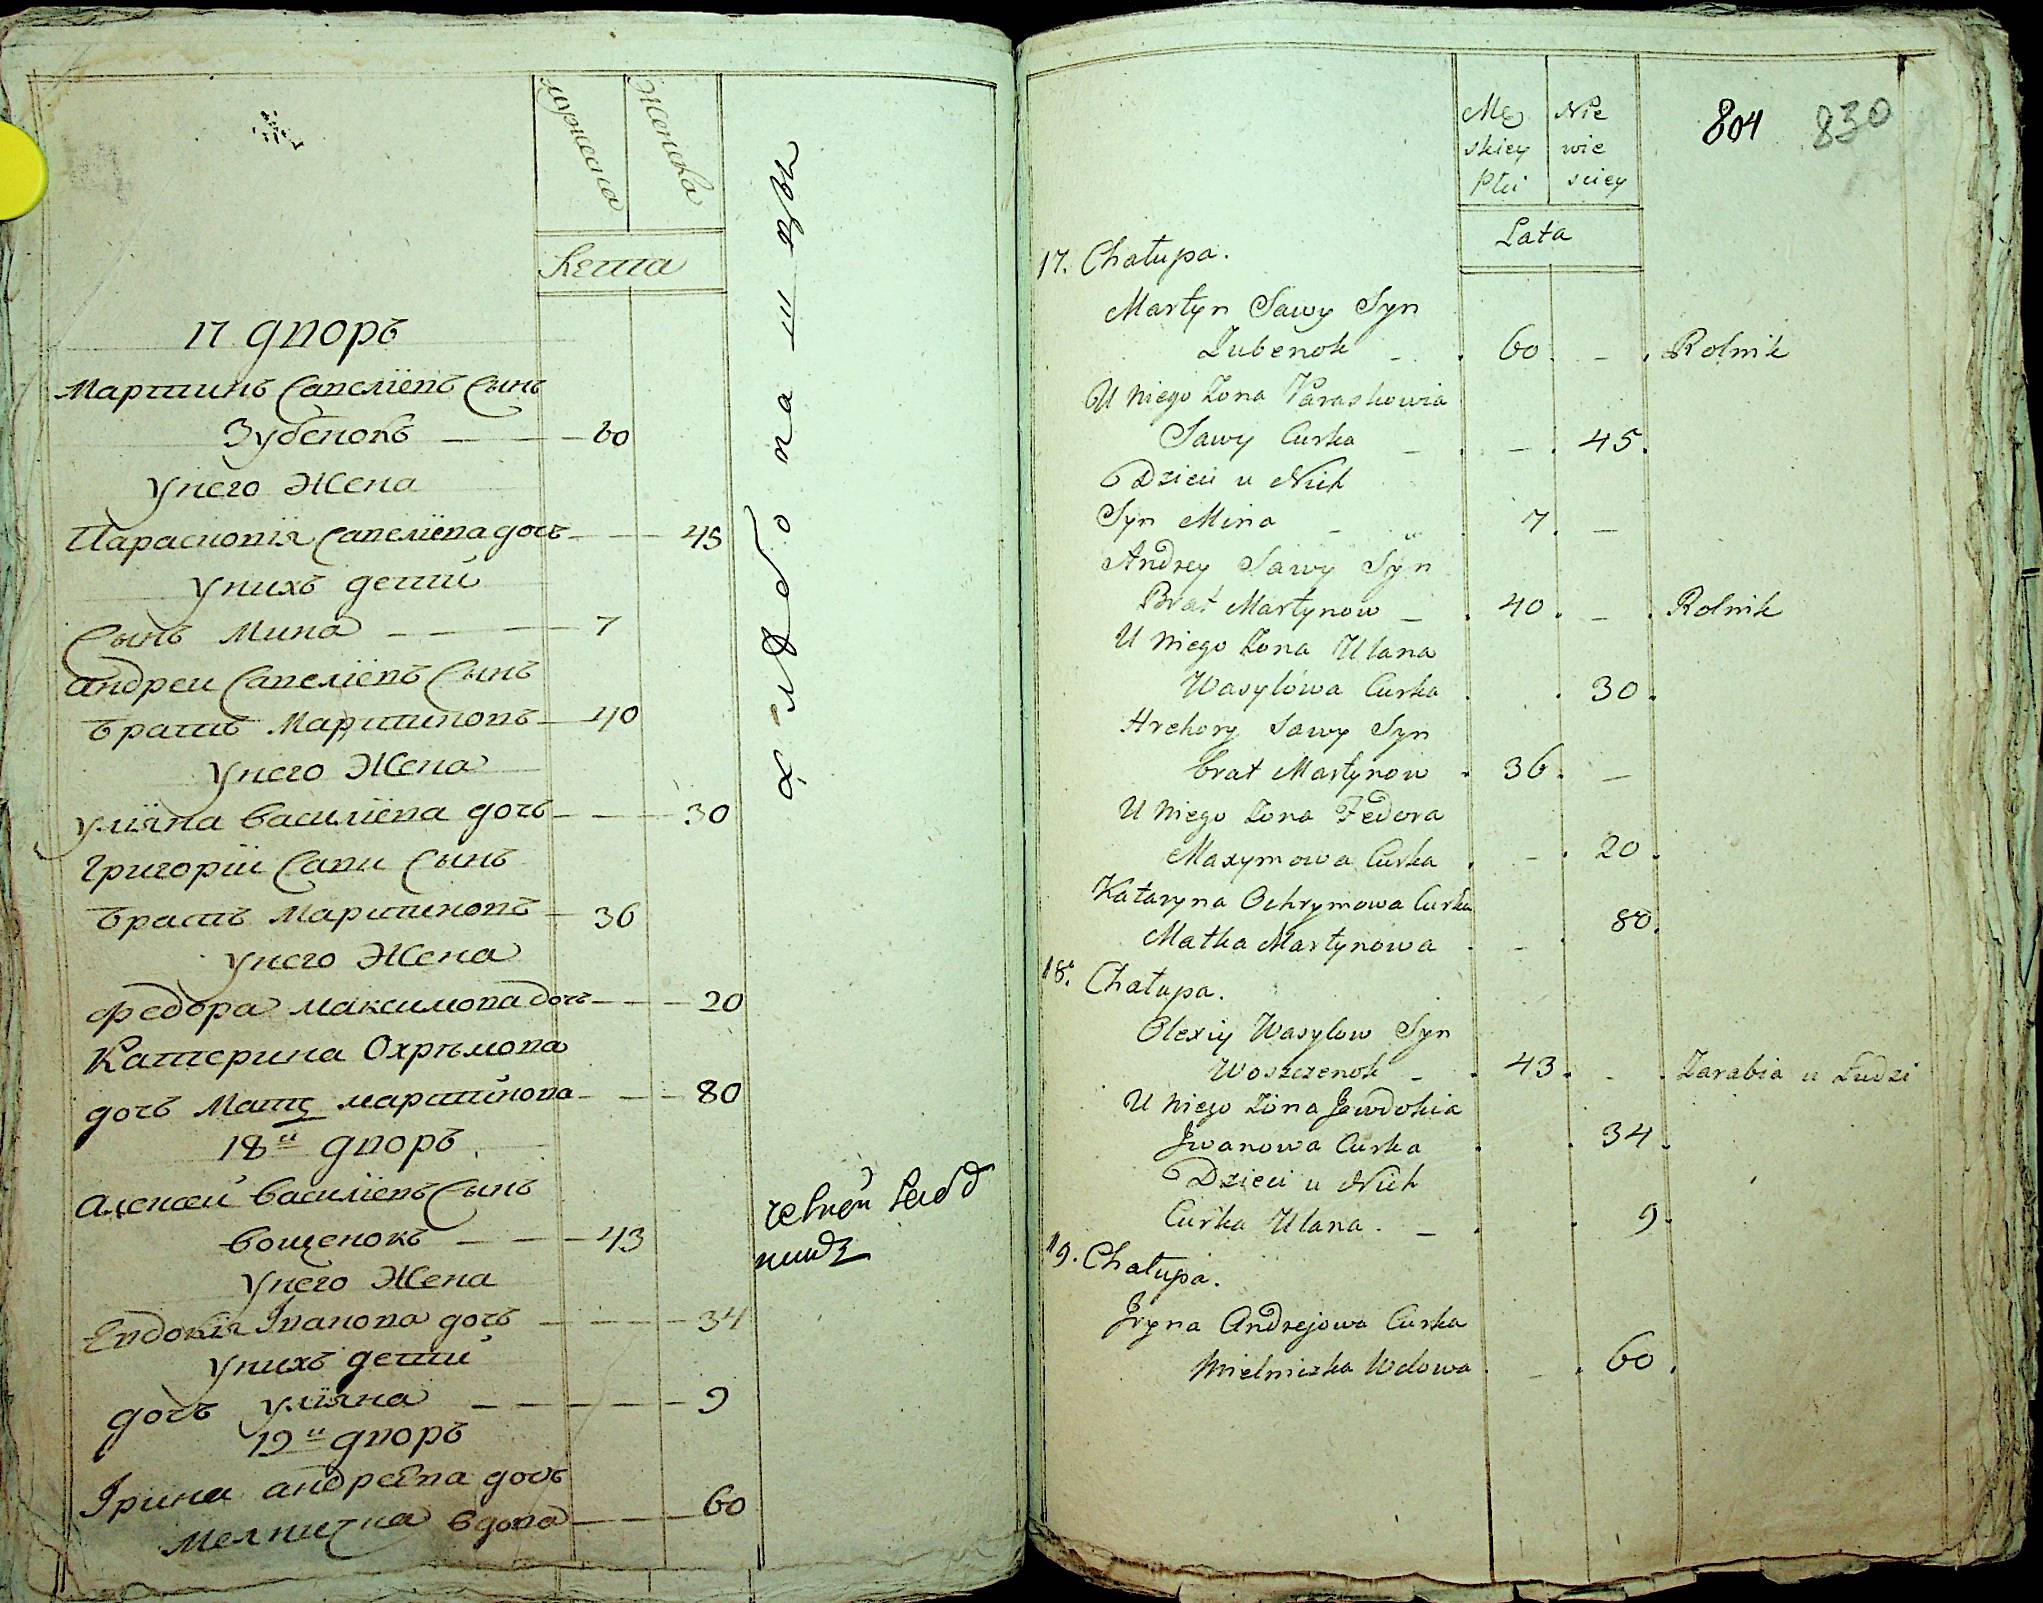 мужеска
женска
Лета
17 дворъ
Мартинъ Савелиевъ Сынъ
Зубенокъ — — — 60
У него Жена
Парасковия Савелиева дочь — — 45
У нихъ дети
Сынъ Мина — — — 7
Андреи Савелиевъ Сынъ
братъ Мартиновъ — 40
У него Жена
Улияна Василиева дочь — — 30
Григории Сави Сынъ
братъ Мартиновъ — 36
У него Жена
Федора Максимова дочь — — 20
Катерина Охрѣмова
дочь Мать Мартинова — — 80
18й дворъ
Алексей Василиевъ Сынъ
Вощенокъ — — — 43
У него Жена
Евдокия Іванова дочь — — — 34
У нихъ дети
дочь Улияна — — — — 9
19й дворъ
Ірина Андреева дочь
Мелничка вдова — — — 60
хлѣбопашцы
804 830
Mę
skiey
Płci
Nie
wie
sciey
Lata
17. Chałupa.
Martyn Sawy Syn
Zubenok — . 60 . — . Rolnik
U niego Żona Paraskowia
Sawy Curka — . — . 45.
Dzieci u Nich
Syn Mina — 7. —
Andrey Sawy Syn
Brat Martynow — . 40 . — . Rolnik
U niego Żona Ulana
Wasylowa Curka . . 30.
Hrehory Sawy Syn
brat Martynow . 36. —
U niego Żona Fedora
Maxymowa Curka . — . 20 .
Kataryna Ochrymowa Curka
Matka Martynowa . — . 80.
18. Chałupa.
Olexiy Wasylow Syn
Woszczenok — . 43. — . Zarabia u Ludzi
U niego Żona Jewdokia
Jwanowa Curka . . 34.
Dzieci u Nich
Curka Ulana. — . . 9.
19. Chałupa.
Jryna Andrejowa Curka
Mielniczka Wdowa . — . 60.